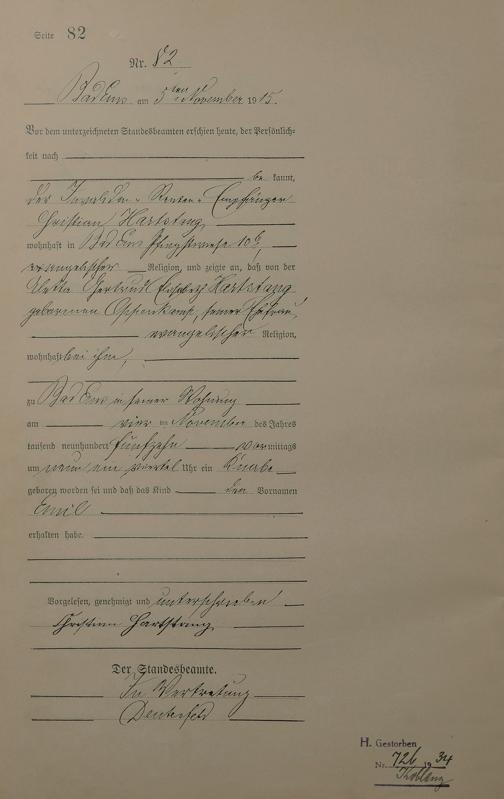 Seite 82
Nr. 82
Bad Ems am 5ten November 1915.
Vor dem unterzeichneten Standesbeamten erschien heute, der Persönlich-
keit nach
be kannt,
der Invaliden-Renten-Empfänger
Christian Hartstang
wohnhaft in Bad Ems
evangelischer Religion, und zeigte an, daß von der
Gertrud Hartstang
geborenen seiner Ehefrau
evangelischer Religion,
wohnhaft bei ihm,
zu Bad Ems in seiner Wohnung
am vier ten November des Jahres
tausend neunhundert fünfzehn vor mittags
um neun ein viertel Uhr ein Knabe
geboren worden sei und daß das Kind den Vornamen
Emil
erhalten habe.
Vorgelesen, genehmigt und unterschrieben
Christian Hartstang
Der Standesbeamte.
In Vertretung
H. Gestorben
Nr. 726 1934
Koblenz